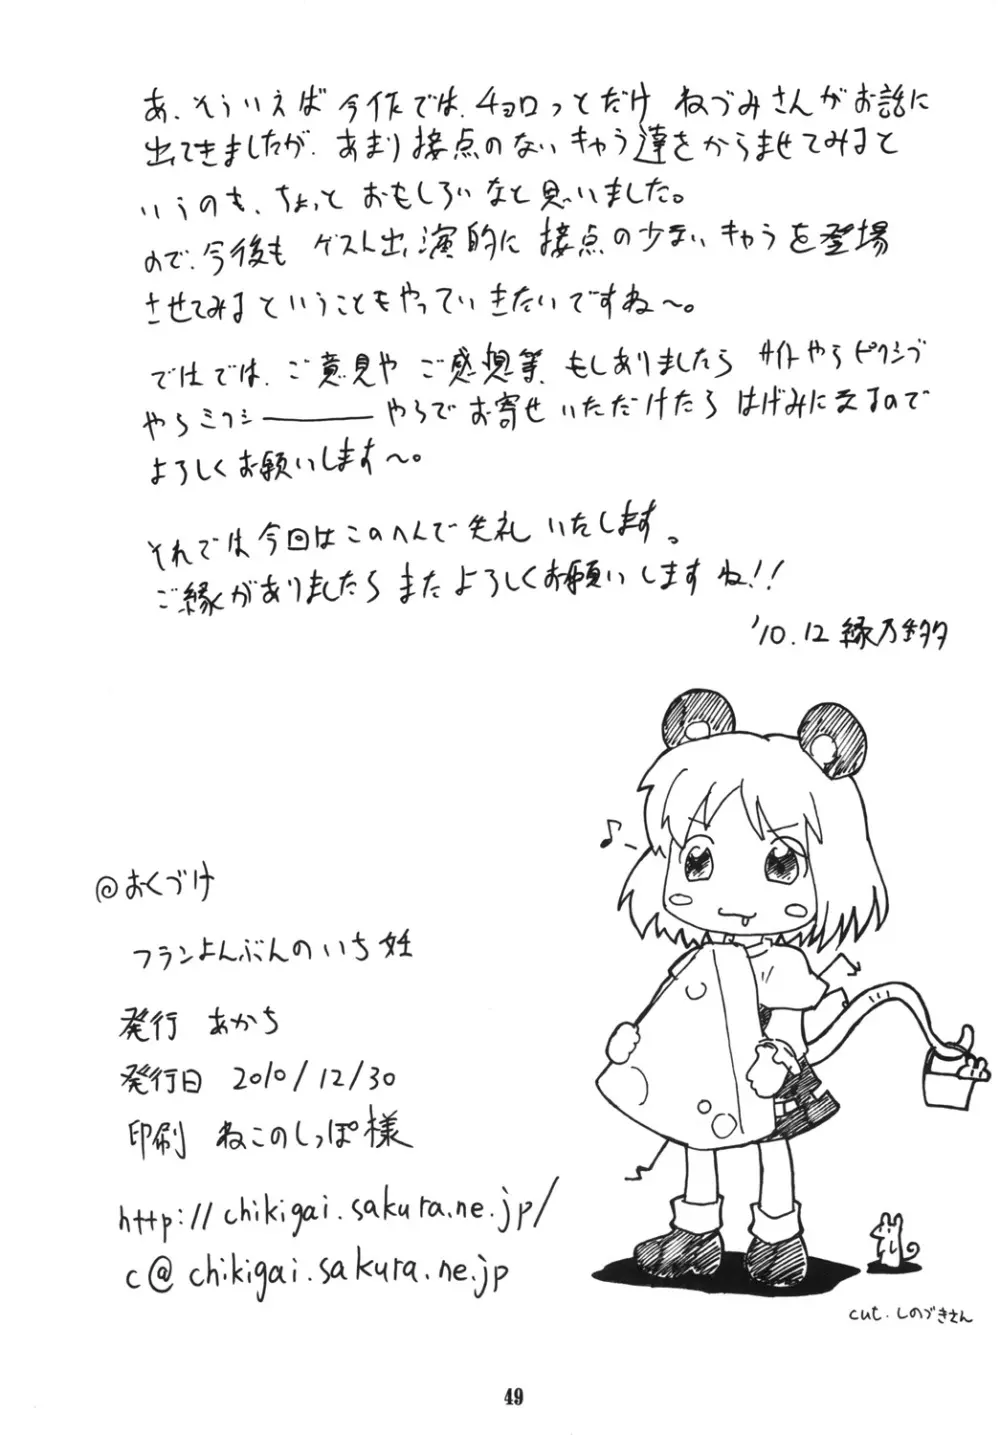 あ、そういえば今作では、チョロっとだけ ねづみさんがお話に
出てきましたが、あまり接点のないキャラ達をからませてみると
いうのも、ちょっと おもしろいなと思いました。
ので、今後も ゲスト出演的に 接点の少ないキャラを登場
させてみるということもやっていきたいですね〜。
ではでは、ご意見や ご感想等、もしありましたら サイトやらピクシブ
やらミクシーーーーやらでお寄せいただけたら はげみになるので
よろしくお願いします〜。
それでは今回はこのへんで失礼いたします。
ご縁がありましたらまたよろしくお願いしますね!!
'10.12 縁乃
♪
@おくづけ
フランよんぶんのいち妊
発行 あかち
発行日 2010/12/30
印刷 ねこのしっぽ様
http://chikigai.sakura.ne.jp/
c@chikigai.sakura.ne.jp
cut.しのづきさん
49